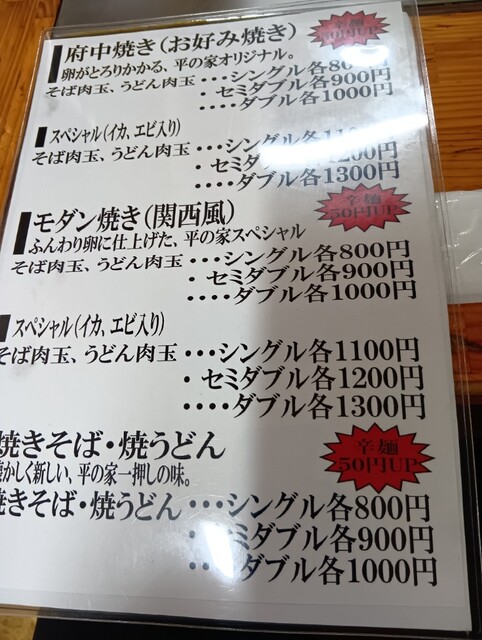 府中焼き(お好み焼き)
辛麺
50円UP
卵がとろりかかる、平の家オリジナル。
そば肉玉、うどん肉玉・・・シングル各800円
・セミダブル各900円
・・・・ダブル各1000円
スペシャル(イカ、エビ入り)
そば肉玉、うどん肉玉・・・シングル各1100円
・セミダブル各1200円
・・・・ダブル各1300円
モダン焼き(関西風)
辛麺
50円UP
ふんわり卵に仕上げた、平の家スペシャル
そば肉玉、うどん肉玉・・・シングル各800円
・セミダブル各900円
・・・・ダブル各1000円
スペシャル(イカ、エビ入り)
そば肉玉、うどん肉玉・・・シングル各1100円
・セミダブル各1200円
・・・・ダブル各1300円
焼きそば・焼うどん
辛麺
50円UP
かしく新しい、平の家一押しの味。
焼きそば・焼うどん・・・シングル各800円
・セミダブル各900円
・・・・ダブル各1000円